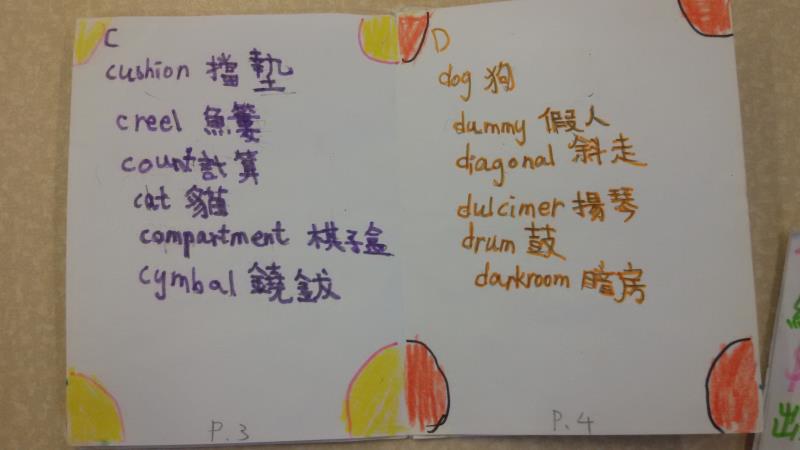 C
cushion 擋墊
creel 魚簍
count 計算
cat 貓
compartment 棋子盒
cymbal 鐃鈸
P.3
D
dog 狗
dummy 假人
diagonal 斜走
dulcimer 揚琴
drum 鼓
darkroom 暗房
P.4
出